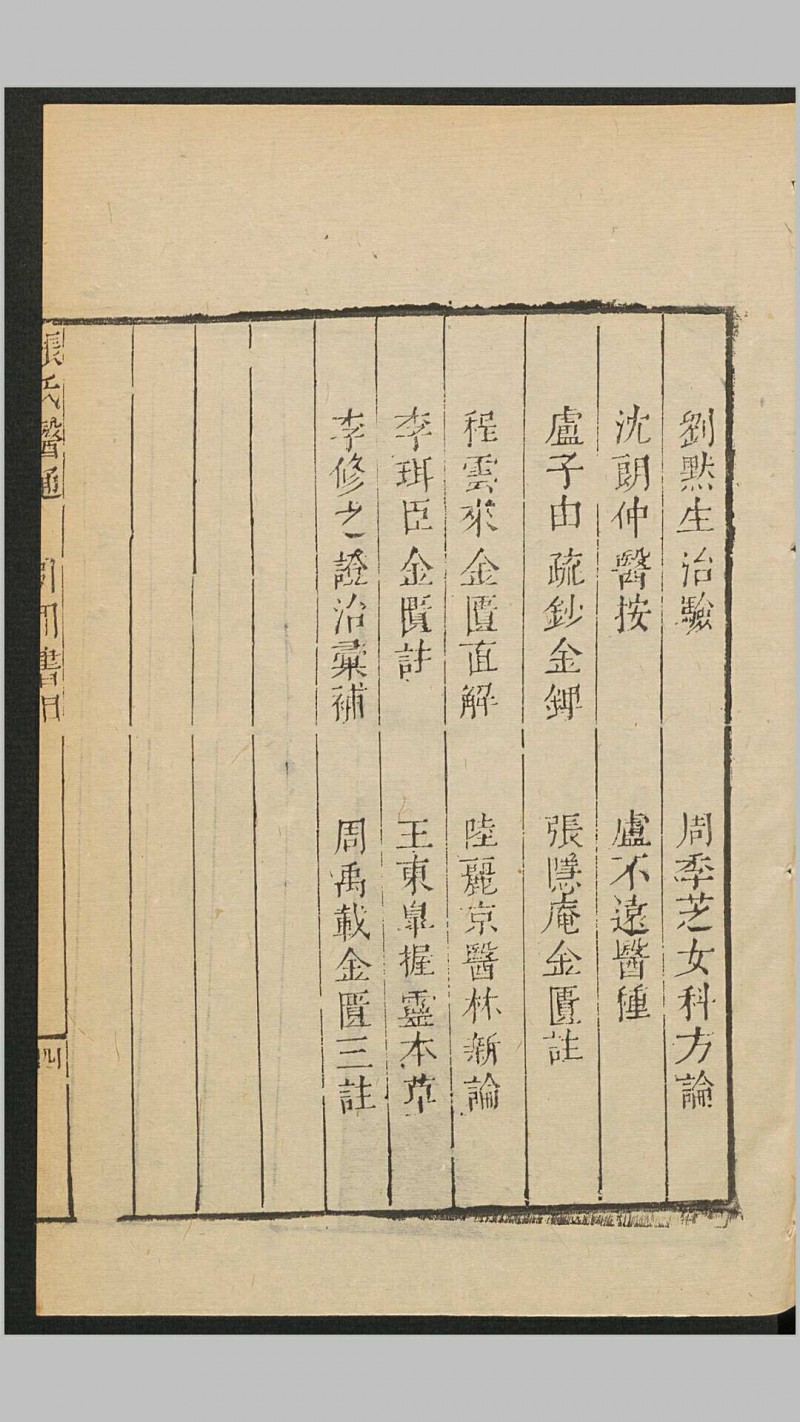 劉默生治驗　周季芝女科方論
沈朗仲醫按　盧不遠醫種
盧子由疏鈔金錍　張隱庵金匱註
程雲來金匱直解　陸麗京醫林新論
李珥臣金匱註　王東臯握靈本草
李修之證治彙補　周禹載金匱三註
張氏醫通　引用書目　四